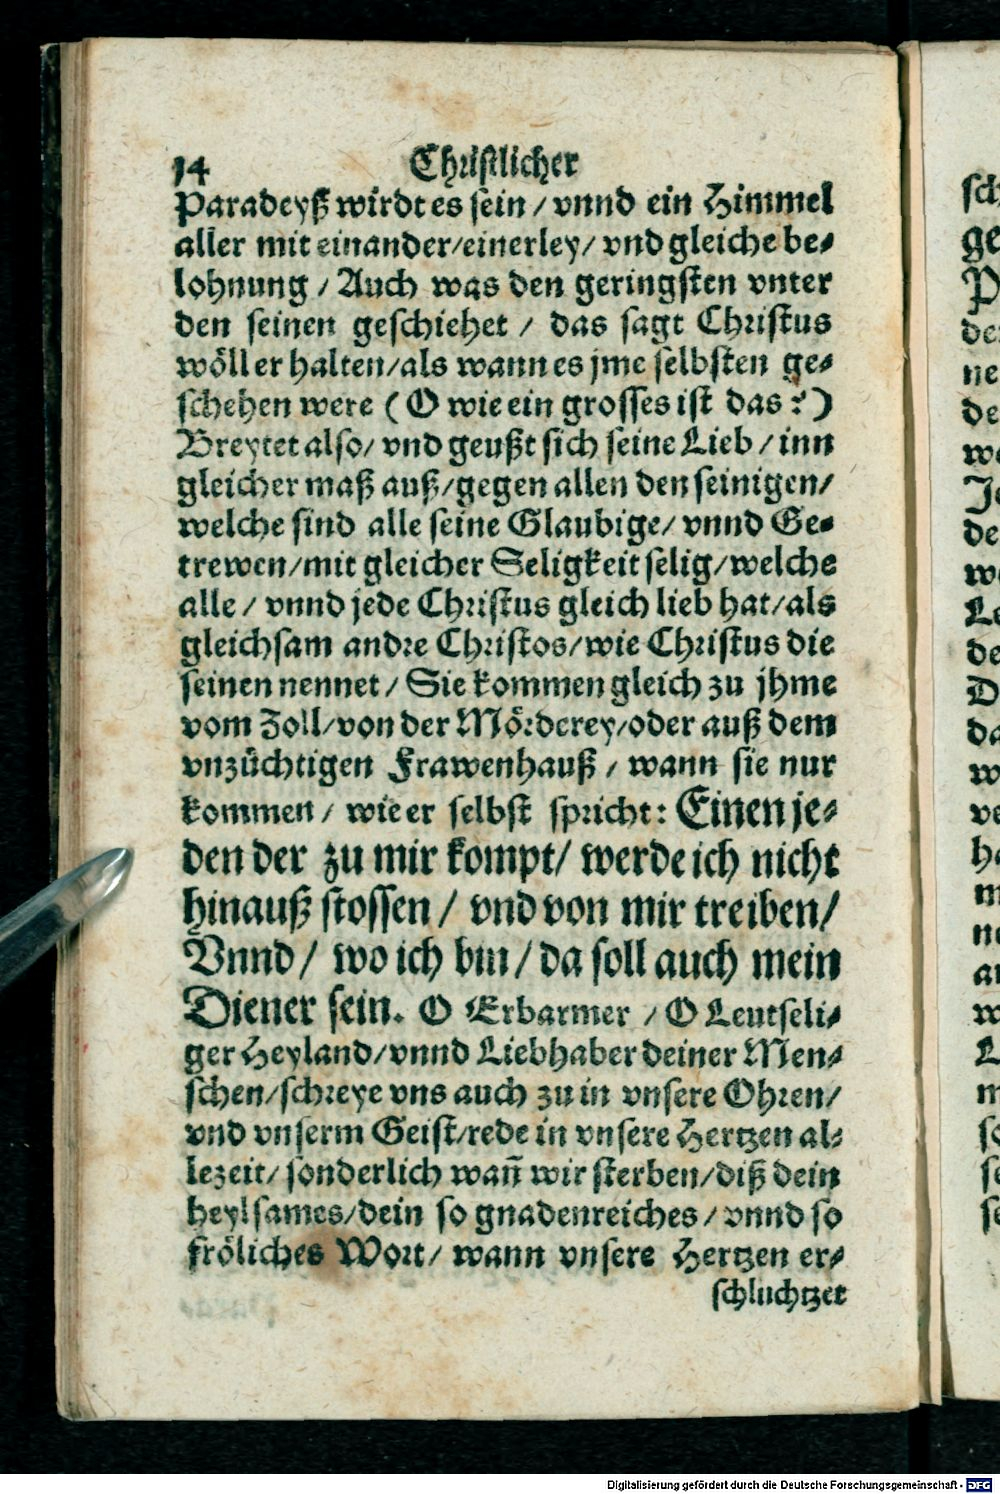 14 Christlicher
Paradeyß wirdt es sein / vnnd ein Himmel
aller mit einander/einerley/ vnd gleiche be-
lohnung / Auch was den geringsten vnter
den seinen geschiehet / das sagt Christus
wöll er halten/als wann es jme selbsten ge-
schehen were ( O wie ein grosses ist das ? )
Breytet also/ vnd geußt sich seine Lieb / inn
gleicher maß auß/gegen allen den seinigen/
welche sind alle seine Glaubige/ vnnd Ge-
trewen/mit gleicher Seligkeit selig/welche
alle / vnnd jede Christus gleich lieb hat/als
gleichsam andre Christos/wie Christus die
seinen nennet / Sie kommen gleich zu jhme
vom Zoll/von der Mörderey/oder auß dem
vnzüchtigen Frawenhauß / wann sie nur
kommen / wie er selbst spricht: Einen je-
den der zu mir kompt/ werde ich nicht
hinauß stossen / vnd von mir treiben/
Vnnd / wo ich bin / da soll auch mein
Diener sein. O Erbarmer / O Leutseli-
ger Heyland/vnnd Liebhaber deiner Men-
schen/schreye vns auch zu in vnsere Ohren/
vnd vnserm Geist/rede in vnsere Hertzen al-
lezeit/ sonderlich wañ wir sterben/diß dein
heylsames/dein so gnadenreiches / vnnd so
fröliches Wort/ wann vnsere Hertzen er-
schluchtzet
sch
ge
P
de
ne
de
we
de
we
Le
de
D
da
w
ve
ha
m
ne
w
L
m
Digitalisierung gefördert durch die Deutsche Forschungsgemeinschaft - DFG